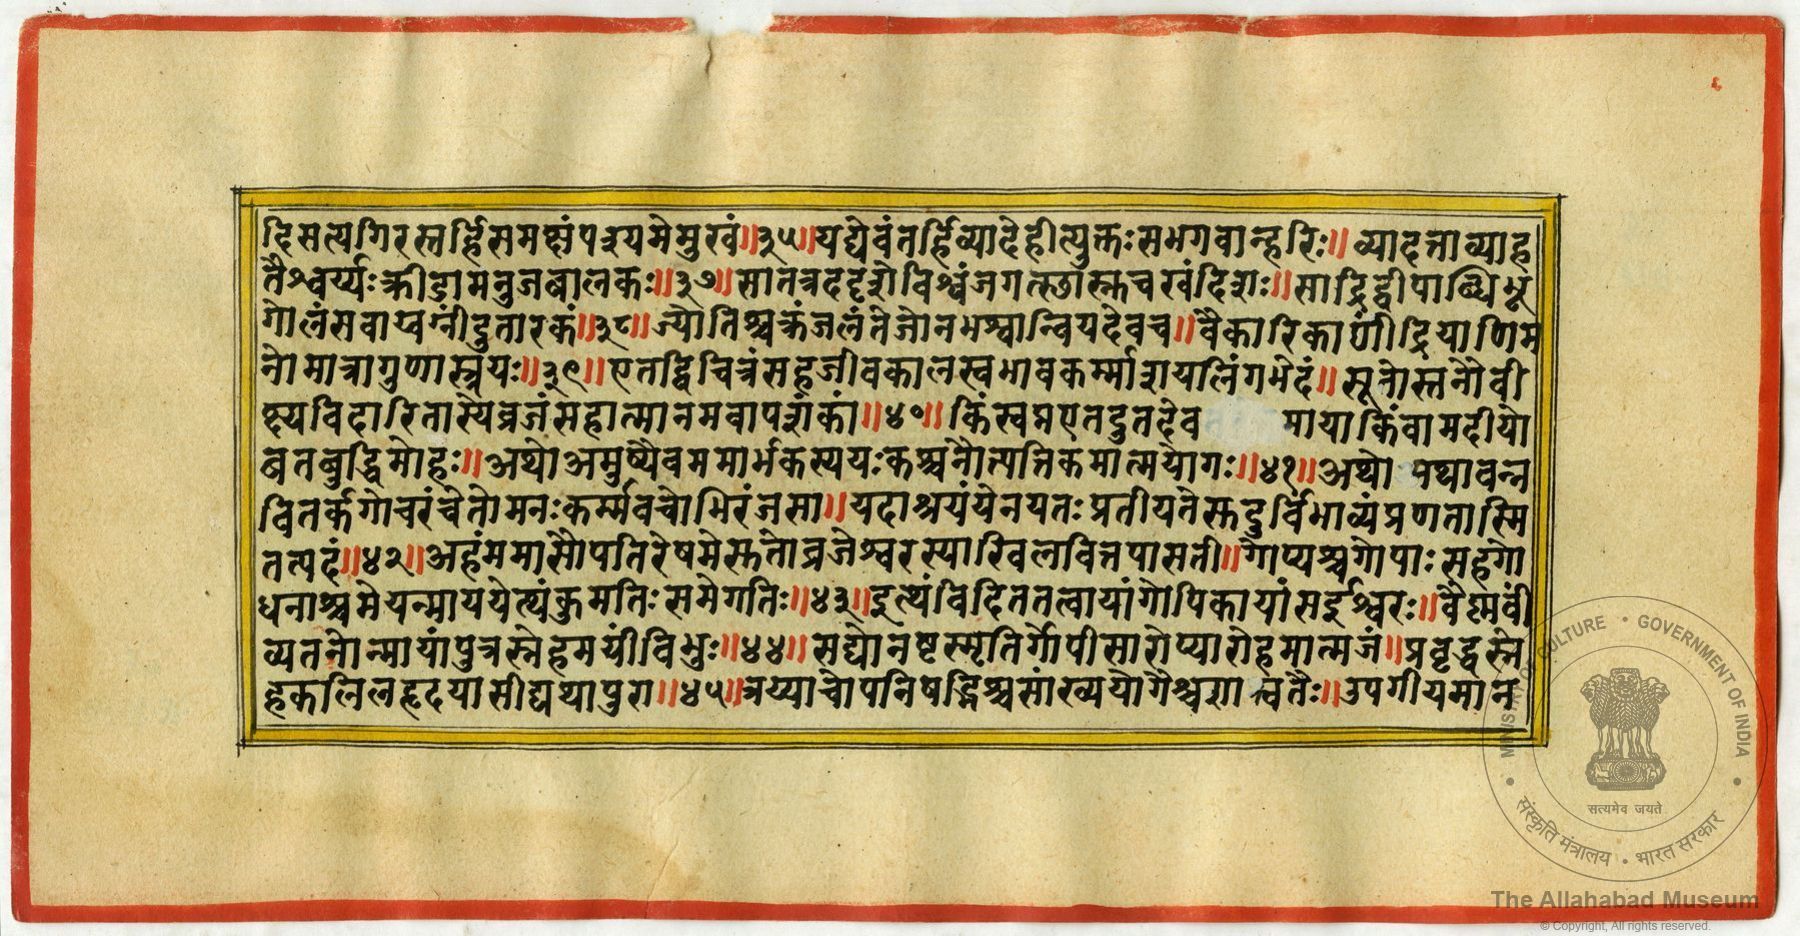 ६
दिसत्यगिरस्तर्हिसमक्षंपश्यमेमुखं॥३५॥यद्येवंतर्हिव्यादेहीत्युक्तःसभगवान्हरिः॥व्यादत्ताव्याह
तैश्वर्य्यःक्रीडामनुजबालकः॥३७॥सातत्रददृशेविश्वंजगत्स्थास्नुचखंदिशः॥साद्रिद्वीपाब्धिभू
गोलंसवाय्वग्नींदुतारकं॥३८॥ज्योतिश्चक्रंजलंतेजोनभश्वान्वियदेवच॥वैकारिकाणींद्रियाणिम
नोमात्रागुणास्त्रयः॥३९॥एतद्विचित्रंसहजीवकालस्वभावकर्म्माशयलिंगभेदं॥सूनोस्तनौवी
क्ष्यविदारितास्येव्रजंसहात्मानमवापशंकां॥४०॥किंस्वप्नएतदुतदेव मायाकिंवामदीयो
बतबुद्धिमोहः॥अथोअमुष्यैवममार्भकस्ययःकश्चनौत्पत्तिकमात्मयोगः॥४१॥अथो पथावन्न
वितर्कगोचरंचेतोमनःकर्म्मवचोभिरंजसा॥यदाश्रयंयेनयतःप्रतीयतेस्तदुर्विभाव्यंप्रणतास्मि
तत्पदं॥४२॥अहंममासौपतिरेषमेस्ततोव्रजेश्वरस्याखिलवित्तपासती॥गोप्यश्चगोपाःसहगो
धनाश्चमेयन्माययेत्थंकुमतिःसमेगतिः॥४३॥इत्थंविदिततत्वायांगोपिकायांसईश्वरः॥वैष्मवीं
व्यतनोन्मायांपुत्रस्नेहमयींविभुः॥४४॥सद्योनष्टस्मृतिर्गोपीसारोप्यारोहमात्मजं॥प्रवृद्धस्ने
हकलिलहृदयासीद्यथापुरा॥४५॥त्रय्याचोपनिषद्भिश्चसांख्ययोगैश्चशा त्वतैः॥उपगीयमान
MINISTRY OF CULTURE • GOVERNMENT OF INDIA
सत्यमेव जयते
संस्कृति मंत्रालय • भारत सरकार
The Allahabad Museum
© Copyright, All rights reserved.